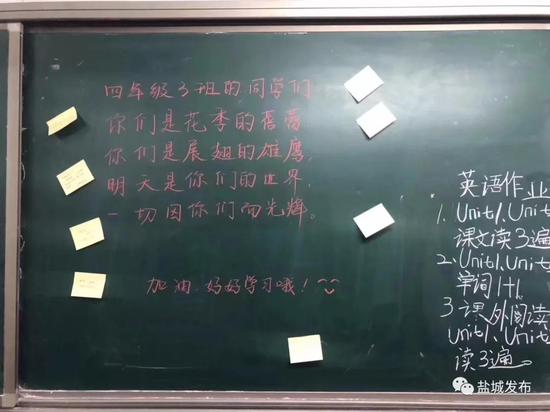 四年级3班的同学们
你们是花季的蓓蕾
你们是展翅的雄鹰,
明天是你们的世界,
一切因你们而光辉。
加油,好好学习哦!
英语作业
1. Unit1、Unit
课文读3遍
2、Unit1、Unit
字词1+1
3课外阅读
Unit1、Unit
读3遍
盐城发布